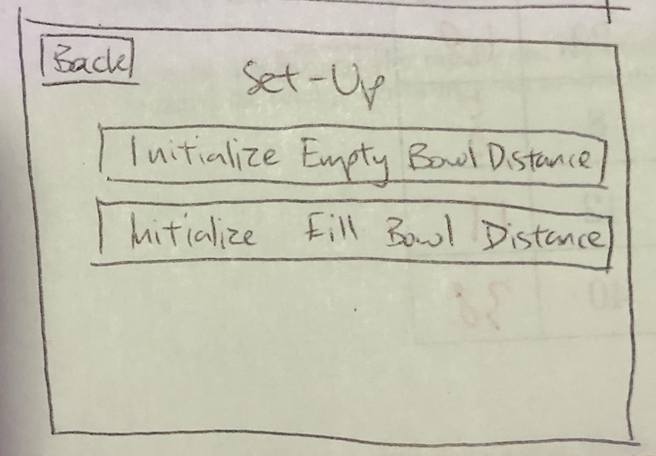 Back
Set-Up
Initialize Empty Bowl Distance
Initialize Fill Bowl Distance